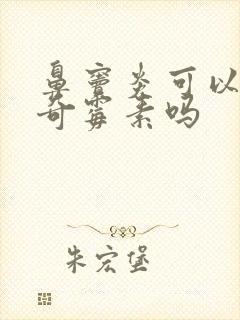 鼻窦炎可以
奇霉素吗
朱宏堡